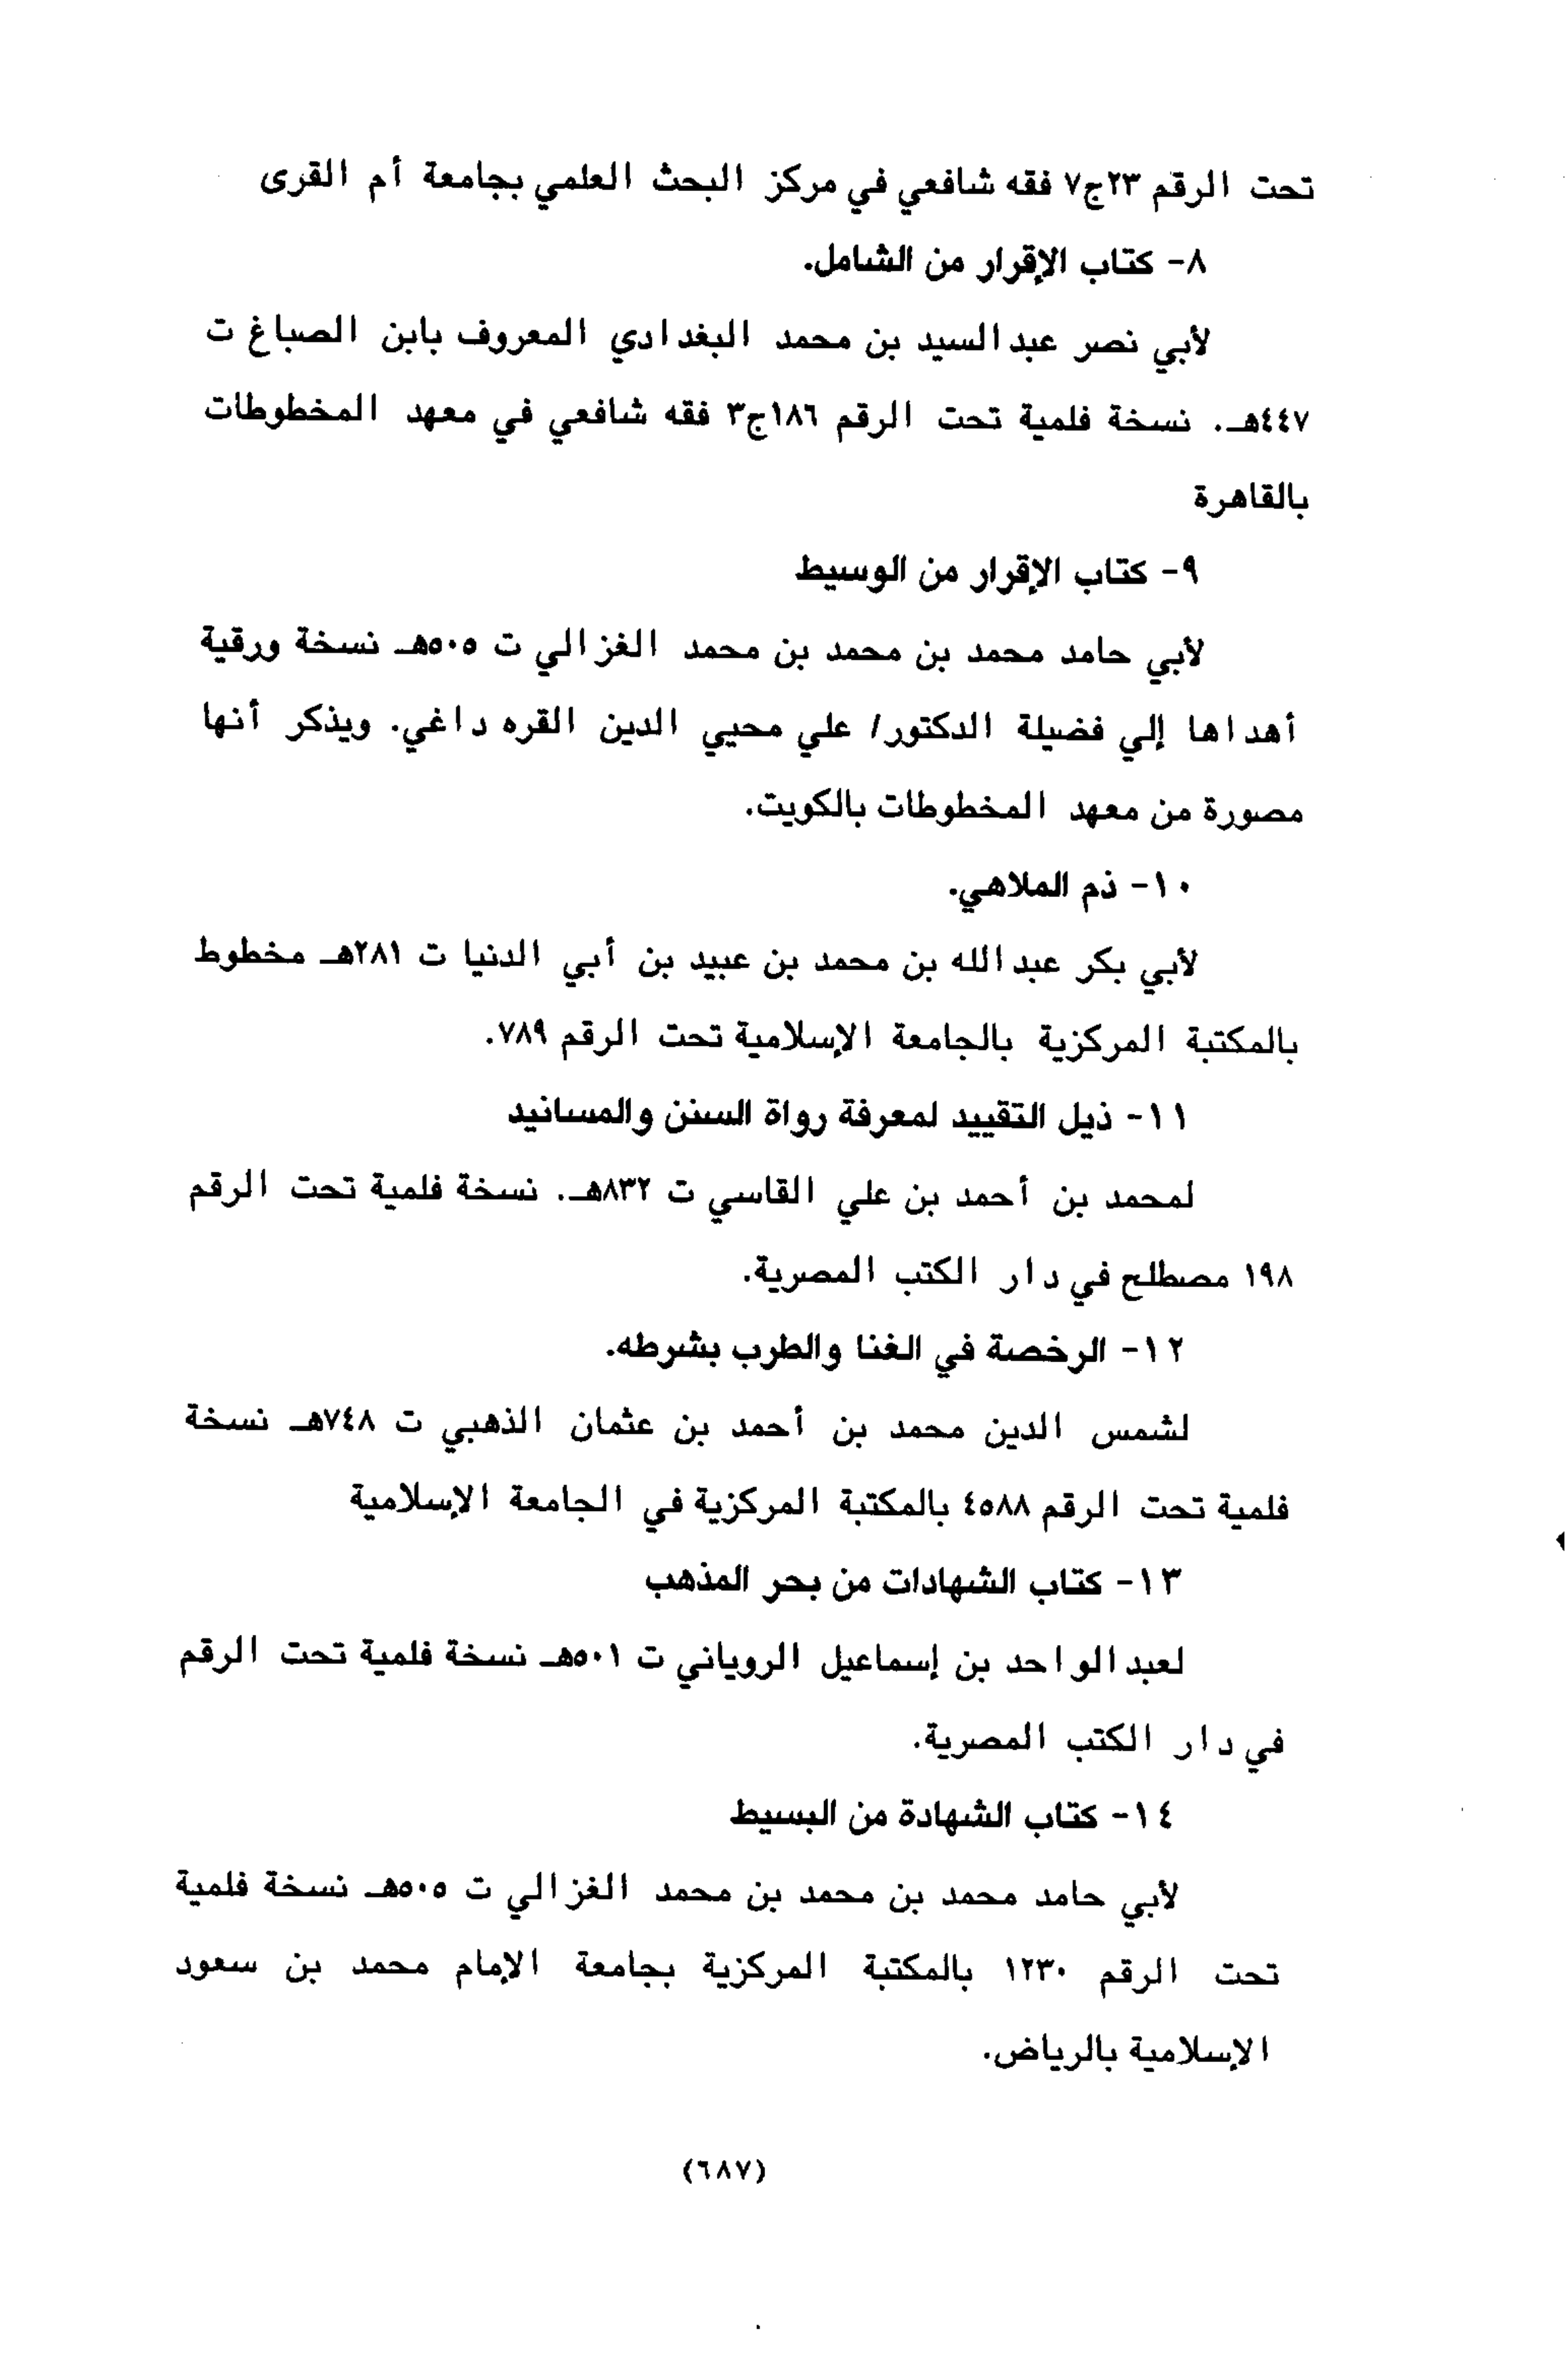 تحت الرقم ٢٣ج٧ فقه شافعي في مركز البحث العلمي بجامعة أم القرى
٨- كتاب الإقرار من الشامل.
لأبي نصر عبدالسيد بن محمد البغدادي المعروف بابن الصباغ ت
٤٤٧هـ. نسخة فلمية تحت الرقم ١٨٦ج٣ فقه شافعي في معهد المخطوطات
بالقاهرة
٩- كتاب الإقرار من الوسيط
لأبي حامد محمد بن محمد بن محمد الغزالي ت ٥٠٥هـ نسخة ورقية
أهداها إلي فضيلة الدكتور/ علي محيي الدين القره داغي. ويذكر أنها
مصورة من معهد المخطوطات بالكويت.
١٠- ذم الملاهي.
لأبي بكر عبدالله بن محمد بن عبيد بن أبي الدنيا ت ٢٨١هـ مخطوط
بالمكتبة المركزية بالجامعة الإسلامية تحت الرقم ٧٨٩.
١١- ذيل التقييد لمعرفة رواة السنن والمسانيد
لمحمد بن أحمد بن علي القاسي ت ٨٣٢هـ. نسخة فلمية تحت الرقم
١٩٨ مصطلح في دار الكتب المصرية.
١٢- الرخصة في الغنا والطرب بشرطه.
لشمس الدين محمد بن أحمد بن عثمان الذهبي ت ٧٤٨هـ نسخة
فلمية تحت الرقم ٤٥٨٨ بالمكتبة المركزية في الجامعة الإسلامية
١٣- كتاب الشهادات من بحر المذهب
لعبدالواحد بن إسماعيل الروياني ت ٥٠١هـ نسخة فلمية تحت الرقم
في دار الكتب المصرية.
١٤- كتاب الشهادة من البسيط
لأبي حامد محمد بن محمد بن محمد الغزالي ت ٥٠٥هـ نسخة فلمية
تحت الرقم ١٢٣٠ بالمكتبة المركزية بجامعة الإمام محمد بن سعود
الإسلامية بالرياض.
(٦٨٧)